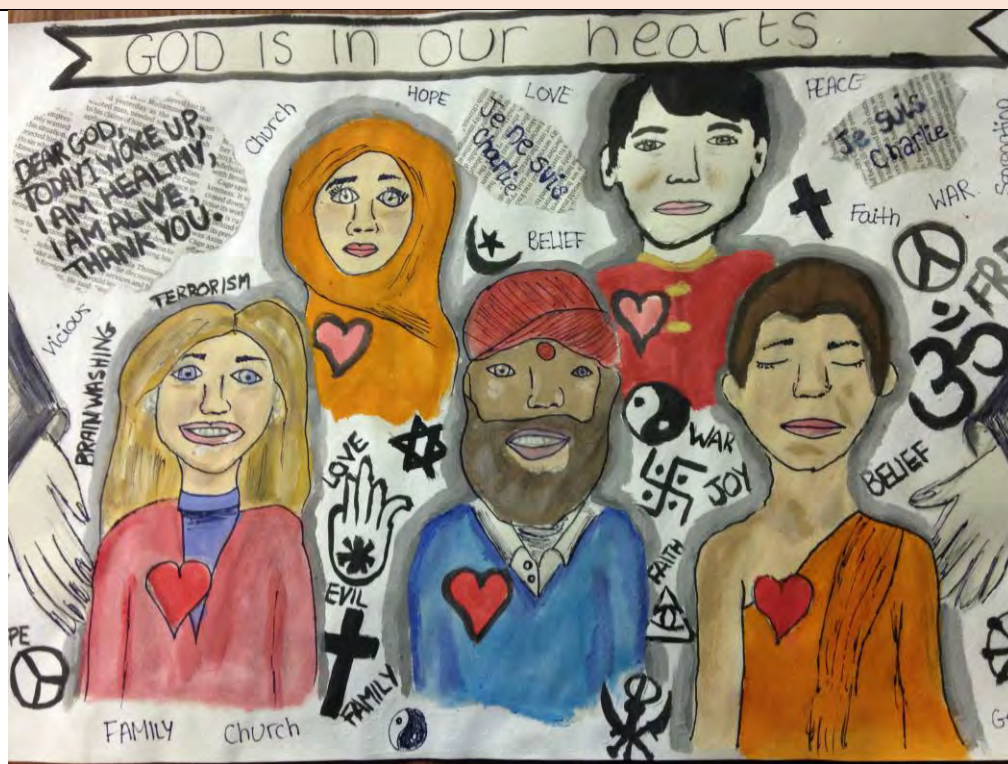 GOD IS IN OUR hearts
DEAR GOD,
TODAY I WOKE UP,
I AM HEALTHY,
I AM ALIVE,
THANK YOU.
Church
HOPE
LOVE
Je ne suis
Charlie
PEACE
Je suis
Charlie
Faith
WAR
BELIEF
TERRORISM
Vicious
BRAINWASHING
LOVE
EVIL
FAMILY
WAR
JOY
FAITH
BELIEF
FAMILY
Church